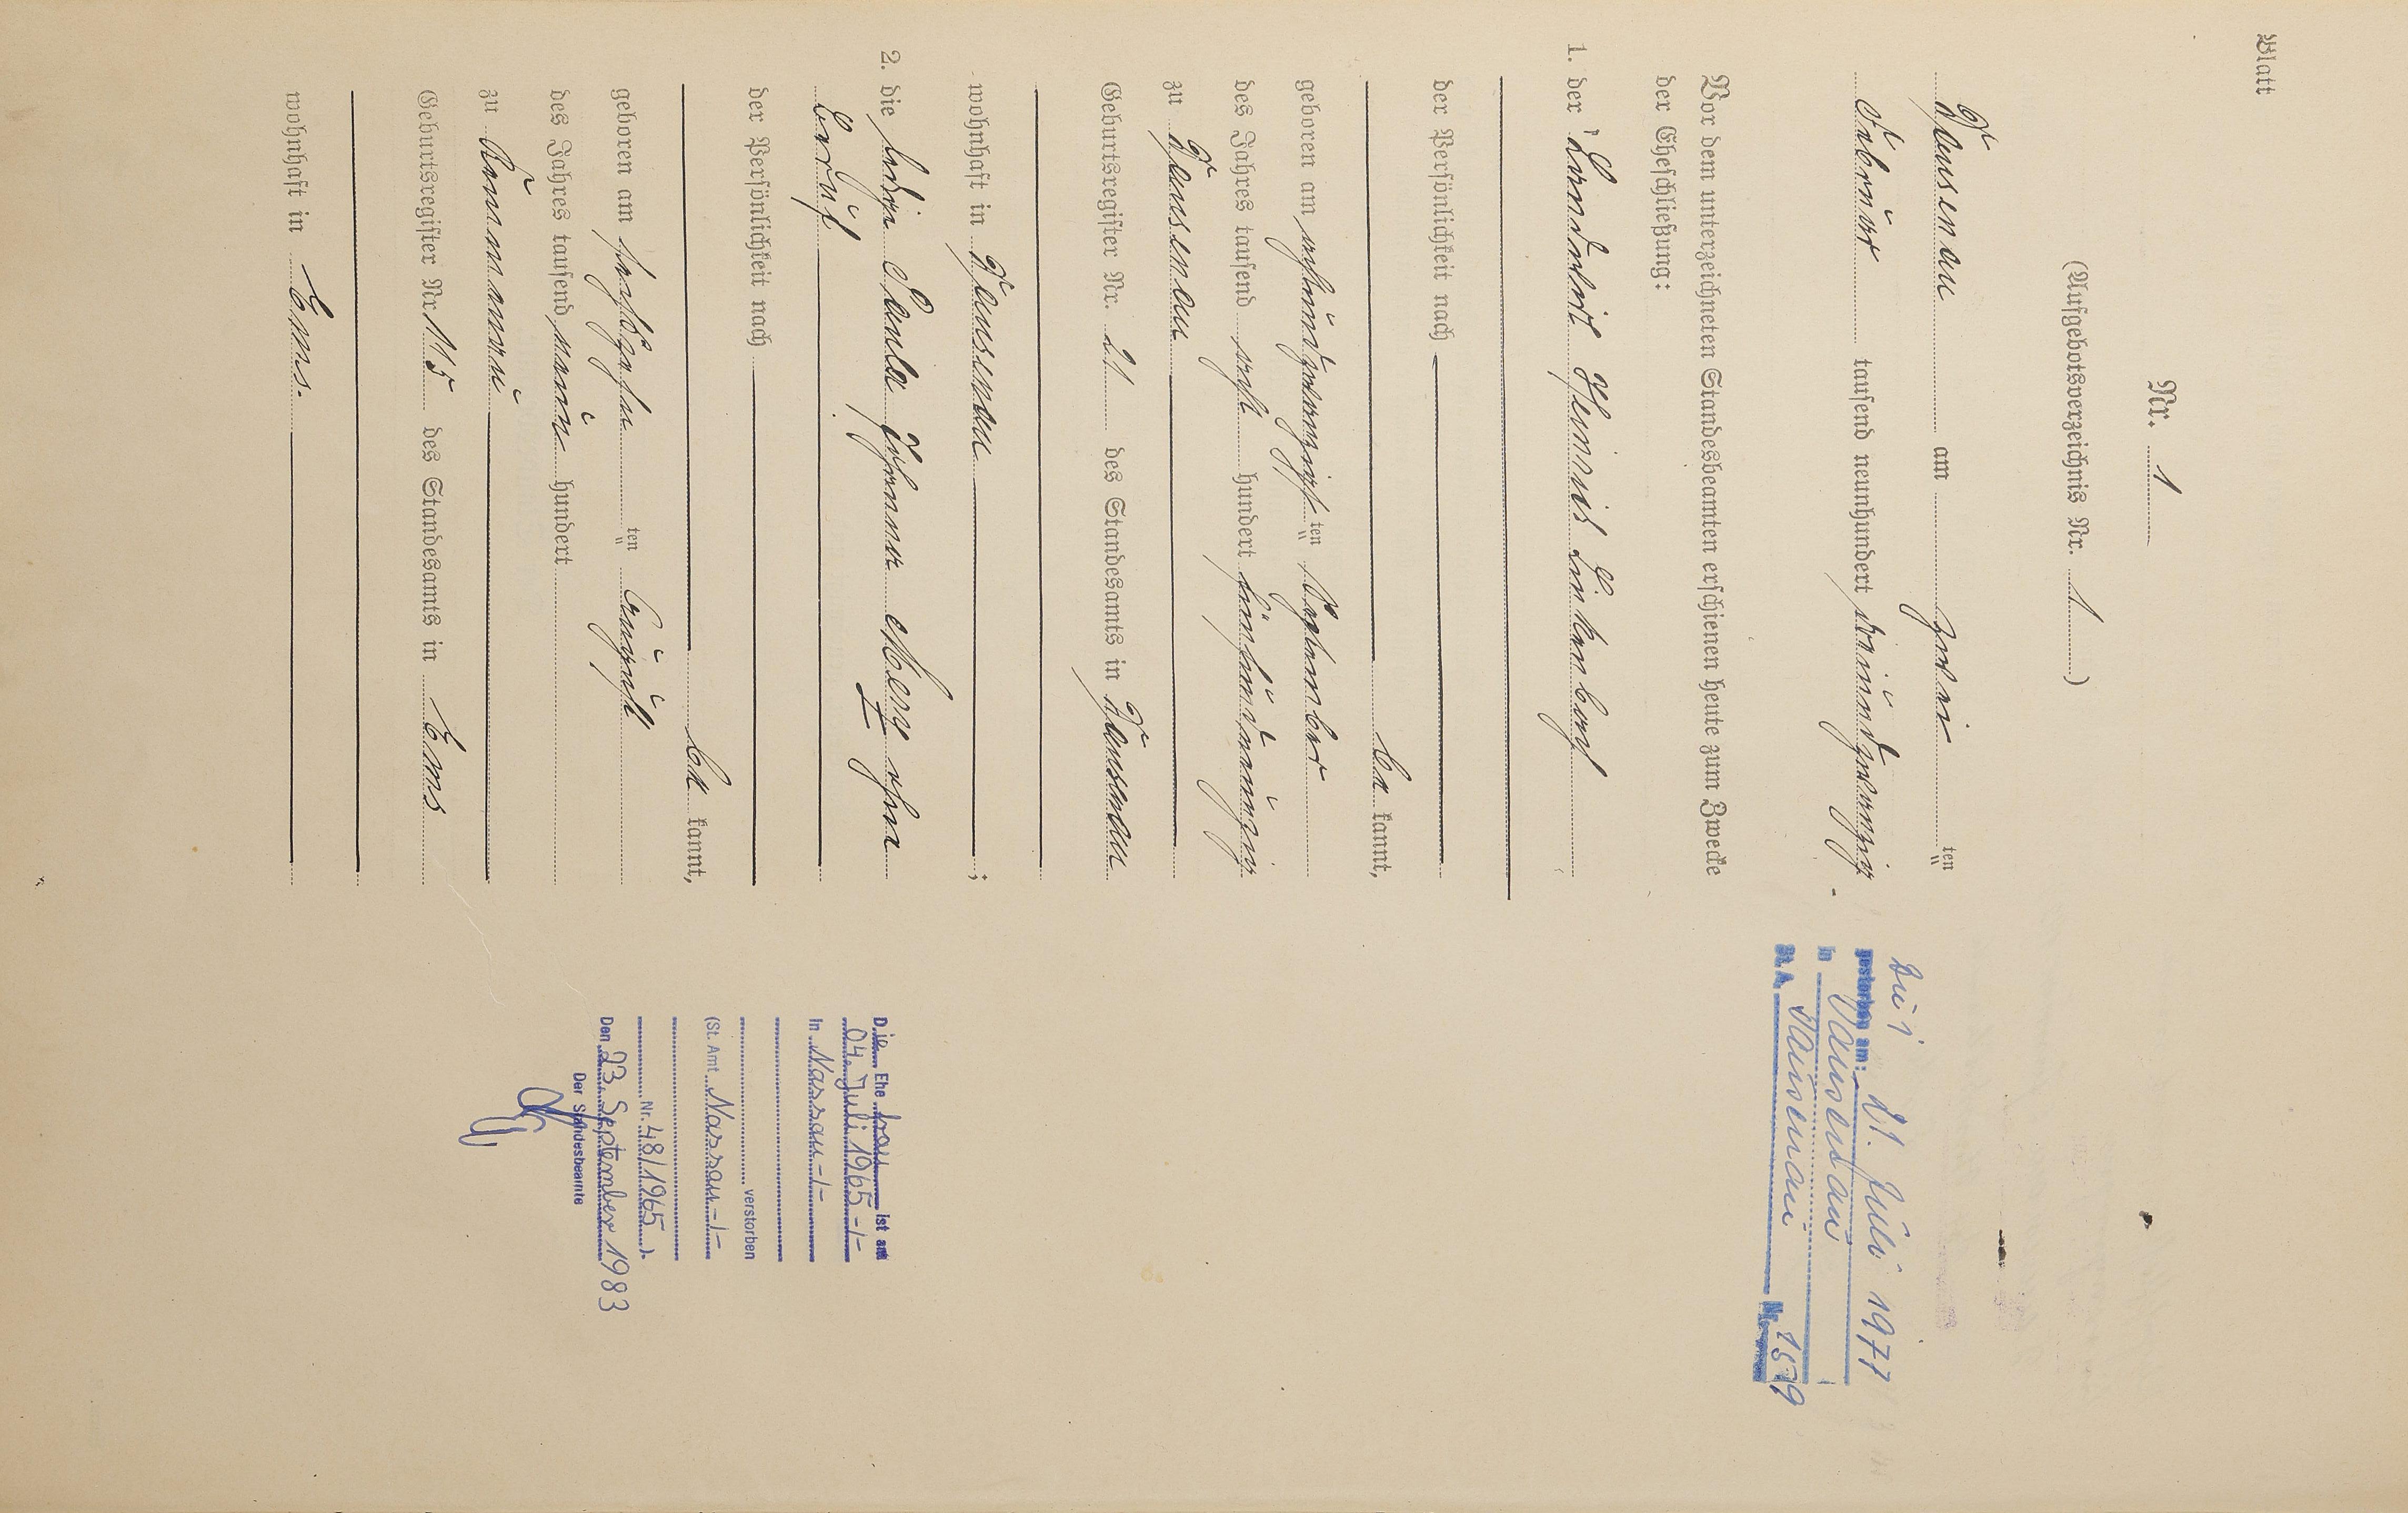 Blatt
Nr. 1
(Aufgebotsverzeichnis Nr. 1)
Dausenau am zwei ten
Februar tausend neunhundert dreiundzwanzig.
Vor dem unterzeichneten Standesbeamten erschienen heute zum Zwecke
der Eheschließung:
1. der Landwirt Heinrich Linkenbach
der Persönlichkeit nach
be kannt,
geboren am achtundzwanzigs ten September
des Jahres tausend acht hundert fünfundneunzig
zu Dausenau
Geburtsregister Nr. 21 des Standesamts in Dausenau
wohnhaft in Dausenau ;
2. die ledige Paula Johanna Merz ohne
Beruf
der Persönlichkeit nach
be kannt,
geboren am sechszehn ten August
des Jahres tausend neun hundert
zu Kemmenau
Geburtsregister Nr. 115 des Standesamts in Ems
wohnhaft in Ems.
Zu 1
gestorben am: 21. Juli 1971
in Dausenau
St. A. Dausenau Nr.
Die Ehe frau ist am
04. Juli 1965 -/-
in Nassau -/-
verstorben
(St. Amt Nassau -/-
Nr. 48/1965 ).
Den 23. September 1983
Der Standesbeamte